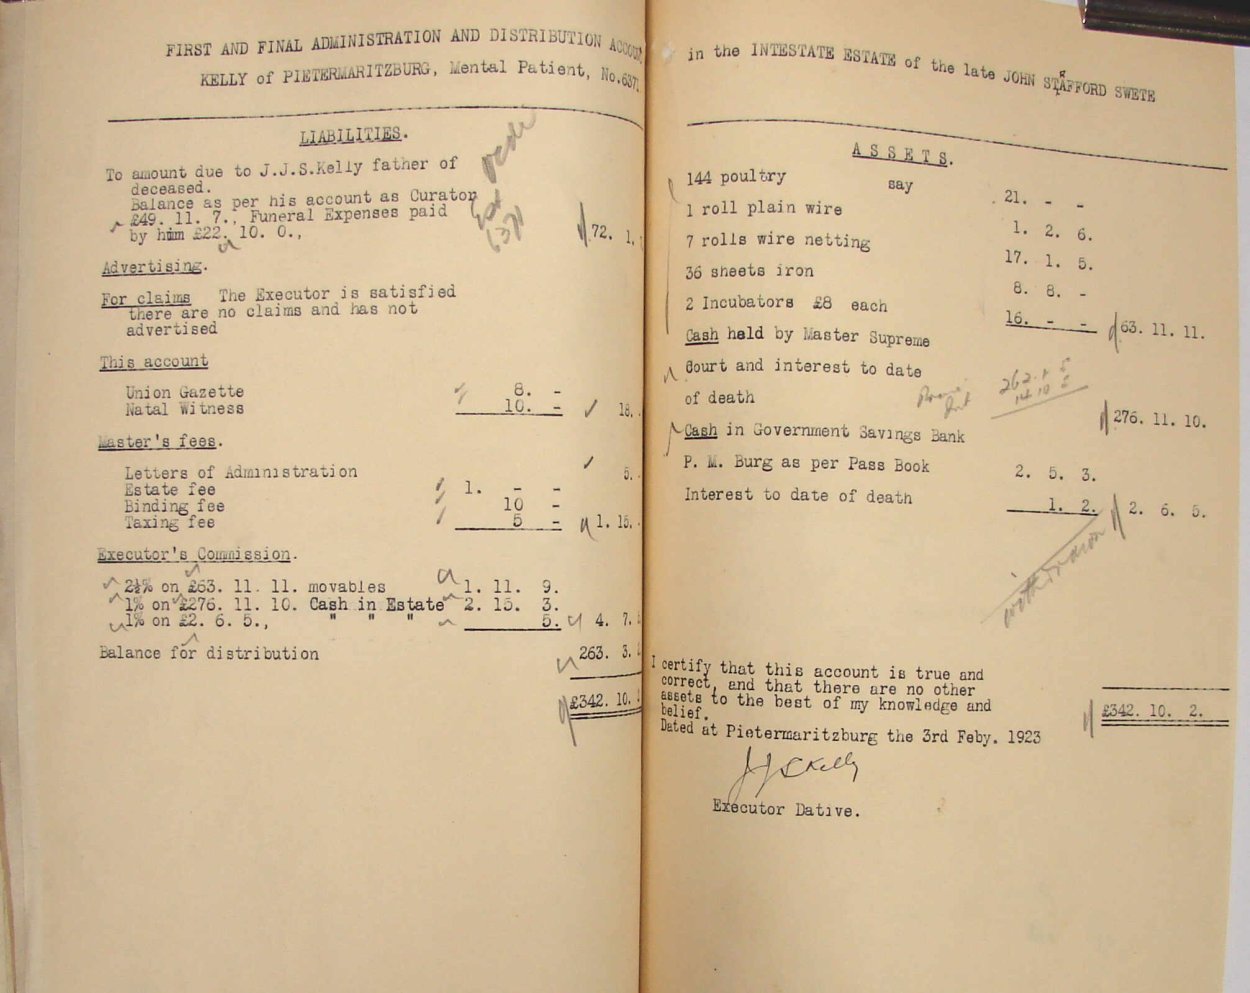 FIRST AND FINAL ADMINISTRATION AND DISTRIBUTION
KELLY of PIETERMARITZBURG, Mental Patient, No.637
LIABILITIES.
To amount due to J.J.S.Kelly father of
deceased.
Balance as per his account as Curator
£49. 11. 7., Funeral Expenses paid
by him £22. 10. 0., 72. 1.
Advertising.
For claims The Executor is satisfied
there are no claims and has not
advertised
This account
Union Gazette 8. -
Natal Witness 10. - 18.
Master's fees.
Letters of Administration 5.
Estate fee 1. - -
Binding fee 10 -
Taxing fee 5 - 1. 15.
Executor's Commission.
2½% on £63. 11. 11. movables 1. 11. 9.
1% on £276. 11. 10. Cash in Estate 2. 15. 3.
1% on £2. 6. 5., " " " 5. 4. 7.
Balance for distribution 263. 3.
£342. 10.
in the INTESTATE ESTATE of the late JOHN STAFFORD SWETE
A S S E T S.
144 poultry say 21. - -
1 roll plain wire 1. 2. 6.
7 rolls wire netting 17. 1. 5.
36 sheets iron 8. 8. -
2 Incubators £8 each 16. - - 63. 11. 11.
Cash held by Master Supreme
Court and interest to date
of death 276. 11. 10.
Cash in Government Savings Bank
P. M. Burg as per Pass Book 2. 5. 3.
Interest to date of death 1. 2. 2. 6. 5.
withdrawn
I certify that this account is true and
correct, and that there are no other
assets to the best of my knowledge and
belief.
Dated at Pietermaritzburg the 3rd Feby. 1923
£342. 10. 2.
JJSKelly
Executor Dative.